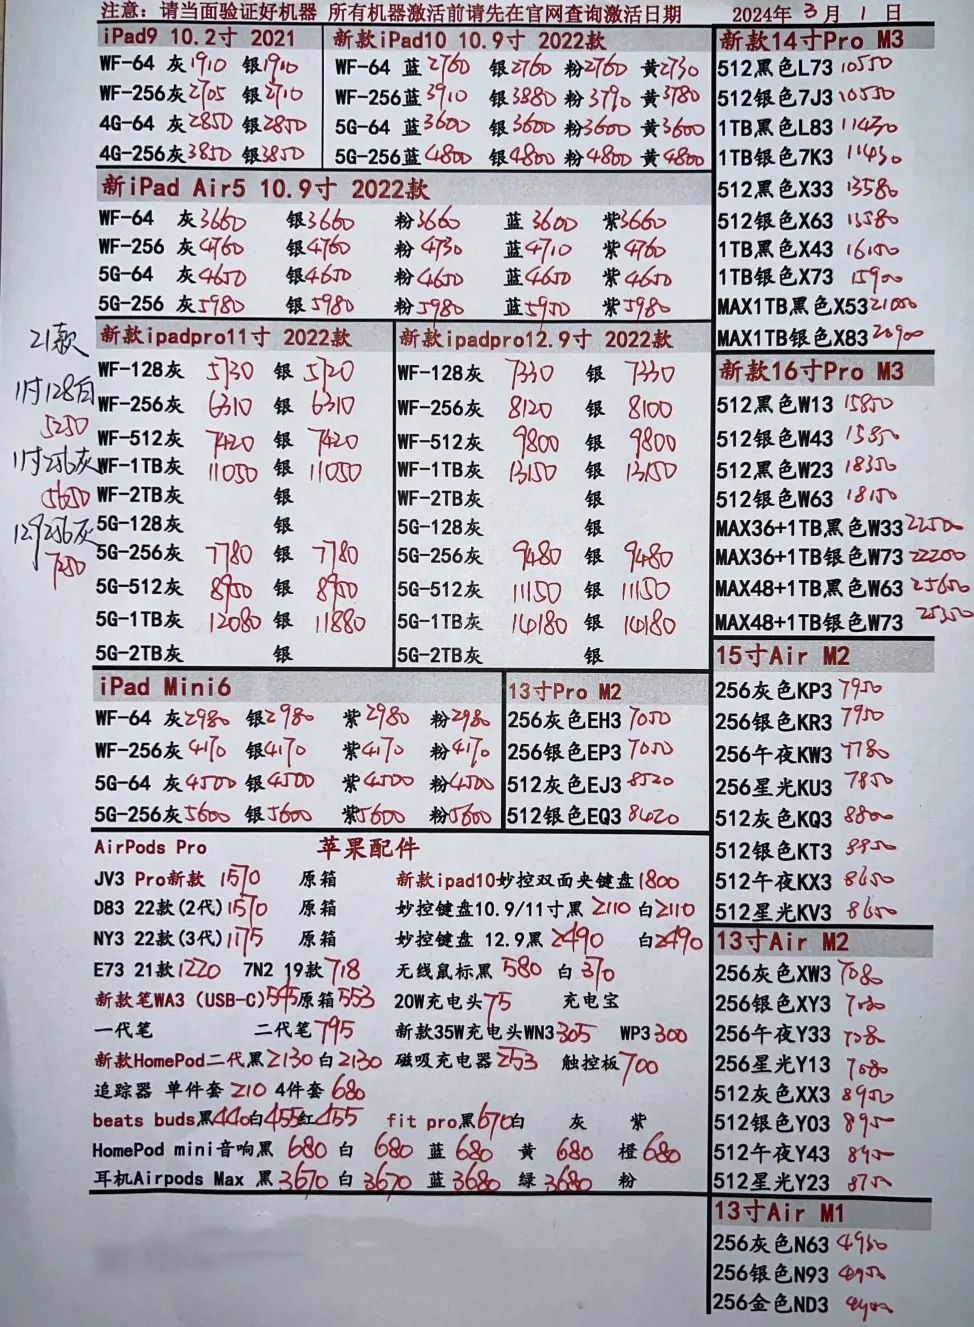 注意：请当面验证好机器 所有机器激活前请先在官网查询激活日期 2024年 3 月 1 日
iPad9 10.2寸 2021
WF-64 灰1910 银1910
WF-256灰2705 银2710
4G-64 灰2850 银2850
4G-256灰3850 银3850
新款iPad10 10.9寸 2022款
WF-64 蓝2760 银2760 粉2760 黄2730
WF-256蓝3910 银3880 粉3790 黄3780
5G-64 蓝3600 银3600 粉3600 黄3600
5G-256蓝4800 银4800 粉4800 黄4800
新iPad Air5 10.9寸 2022款
WF-64 灰3660 银3660 粉3660 蓝3600 紫3660
WF-256 灰4760 银4760 粉4730 蓝4710 紫4760
5G-64 灰4650 银4650 粉4650 蓝4650 紫4650
5G-256 灰5980 银5980 粉5980 蓝5950 紫5980
21款
11寸128白
5250
11寸256灰
5650
129 256灰
7250
新款ipadpro11寸 2022款
WF-128灰 5730 银 5720
WF-256灰 6310 银 6310
WF-512灰 7420 银 7420
WF-1TB灰 11050 银 11050
WF-2TB灰 银
5G-128灰 银
5G-256灰 7780 银 7780
5G-512灰 8950 银 8950
5G-1TB灰 12080 银 11880
5G-2TB灰 银
新款ipadpro12.9寸 2022款
WF-128灰 7330 银 7330
WF-256灰 8120 银 8100
WF-512灰 9800 银 9800
WF-1TB灰 13150 银 13150
WF-2TB灰 银
5G-128灰 银
5G-256灰 9480 银 9480
5G-512灰 11150 银 11150
5G-1TB灰 14180 银 14180
5G-2TB灰 银
iPad Mini6
WF-64 灰2980 银2980 紫2980 粉2980
WF-256灰4170 银4170 紫4170 粉4170
5G-64 灰4500 银4500 紫4500 粉4500
5G-256灰5600 银5600 紫5600 粉5600
13寸Pro M2
256灰色EH3 7050
256银色EP3 7050
512灰色EJ3 8520
512银色EQ3 8420
AirPods Pro 苹果配件
JV3 Pro新款 1570 原箱 新款ipad10妙控双面夹键盘1800
D83 22款(2代)1570 原箱 妙控键盘10.9/11寸黑 2110 白2110
NY3 22款(3代)1175 原箱 妙控键盘 12.9黑 2490 白2490
E73 21款1220 7N2 19款718 无线鼠标黑 580 白 370
新款笔WA3 (USB-C)545原箱553 20W充电头75 充电宝
一代笔 二代笔795 新款35W充电头WN3305 WP3300
新款HomePod二代黑2130白2130 磁吸充电器253 触控板700
追踪器 单件套210 4件套680
beats buds黑440白455红455 fit pro黑670白 灰 紫
HomePod mini音响黑 680 白 680 蓝 680 黄 680 橙680
耳机Airpods Max 黑3670 白 3670 蓝 3680 绿 3680 粉
新款14寸Pro M3
512黑色L73 10550
512银色7J3 10550
1TB黑色L83 11430
1TB银色7K3 11430
512黑色X33 13580
512银色X63 13580
1TB黑色X43 16150
1TB银色X73 15900
MAX1TB黑色X53 21050
MAX1TB银色X83 20900
新款16寸Pro M3
512黑色W13 15850
512银色W43 15850
512黑色W23 18350
512银色W63 18150
MAX36+1TB黑色W33 22500
MAX36+1TB银色W73 22200
MAX48+1TB黑色W63 25650
MAX48+1TB银色W73 25350
15寸Air M2
256灰色KP3 7950
256银色KR3 7950
256午夜KW3 7780
256星光KU3 7850
512灰色KQ3 8800
512银色KT3 8850
512午夜KX3 8650
512星光KV3 8650
13寸Air M2
256灰色XW3 7080
256银色XY3 7080
256午夜Y33 7080
256星光Y13 7080
512灰色XX3 8950
512银色Y03 8950
512午夜Y43 8950
512星光Y23 8750
13寸Air M1
256灰色N63 4950
256银色N93 4950
256金色ND3 4900